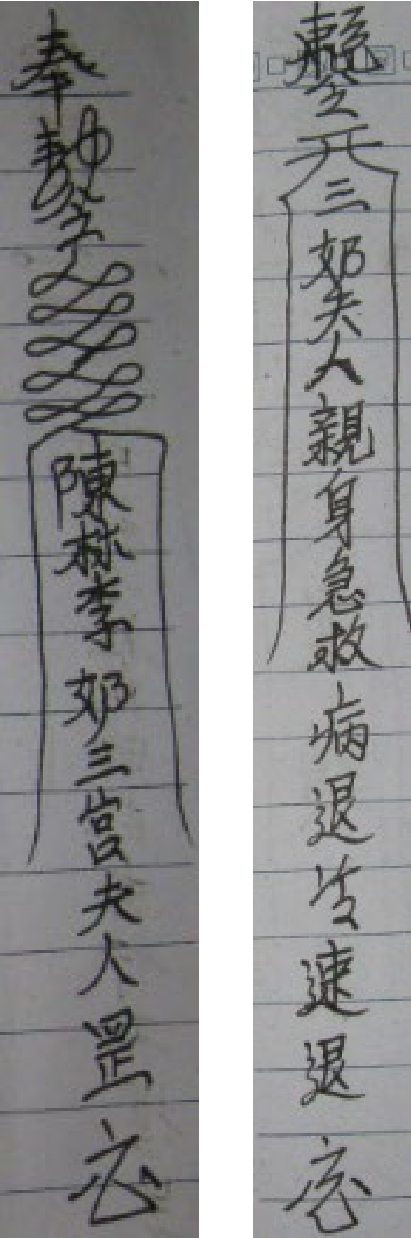 奉勅令陳林李奶三宮夫人罡
三奶夫人親身急救病退速退